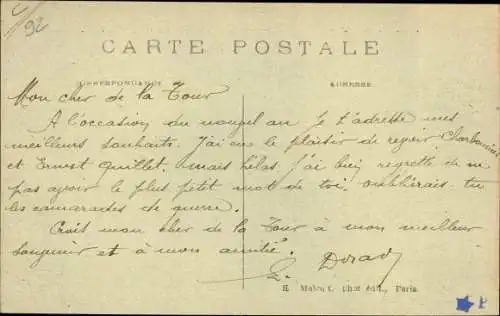 92
CARTE POSTALE
CORRESPONDANCE
ADRESSE
Mon cher de la Tour
A l'occasion du nouvel an je t'adresse mes
meilleurs souhaits. J'ai eu le plaisir de revoir Charbonnier
et Ernest Quillet, mais hélas j'ai bien regretté de ne
pas avoir le plus petit mot de toi, oublierais-tu
les camarades de guerre.
Crois mon cher de la Tour à mon meilleur
souvenir et à mon amitié.
phot édit., Paris.